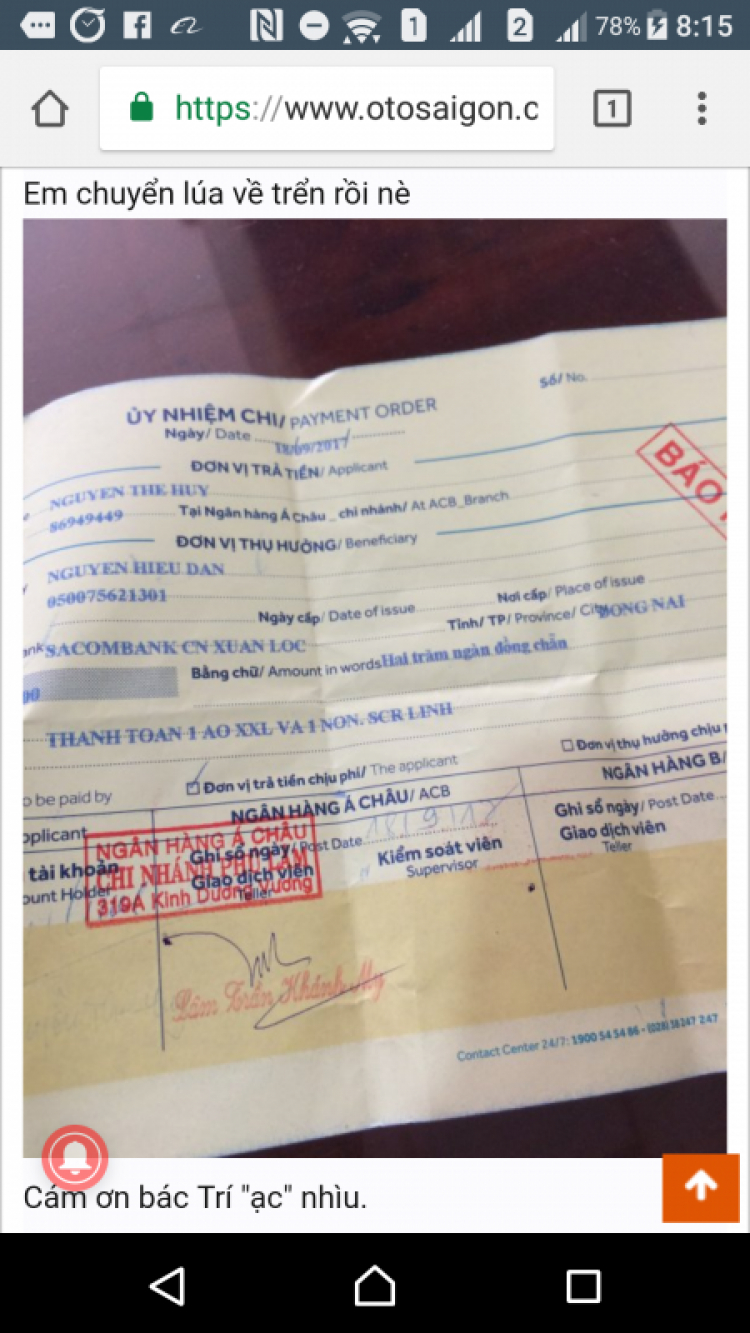 78% 8:15
https://www.otosaigon.c
1
Em chuyển lúa về trển rồi nè
Số/ No.
ỦY NHIỆM CHI/ PAYMENT ORDER
Ngày/ Date 18/09/2017
BÁO
ĐƠN VỊ TRẢ TIỀN/ Applicant
NGUYEN THE HUY
86949449
Tại Ngân hàng Á Châu _ chi nhánh/ At ACB_Branch
ĐƠN VỊ THỤ HƯỞNG/ Beneficiary
NGUYEN HIEU DAN
050075621301
Ngày cấp/ Date of issue
Nơi cấp/ Place of issue
SACOMBANK CN XUAN LOC
Tỉnh/ TP/ Province/ City DONG NAI
00
Bằng chữ/ Amount in words Hai trăm ngàn đồng chẵn
THANH TOAN 1 AO XXL VA 1 NON. SCR LINH
o be paid by
Đơn vị trả tiền chịu phí/ The applicant
Đơn vị thụ hưởng chịu
pplicant
NGÂN HÀNG Á CHÂU/ ACB
NGÂN HÀNG B/
tài khoản
ount Holder
NGÂN HÀNG Á CHÂU
CHI NHÁNH PHÚ LÂM
319A Kinh Dương Vương
Ghi sổ ngày/ Post Date 18/9/17
Giao dịch viên
Teller
Kiểm soát viên
Supervisor
Ghi sổ ngày/ Post Date
Giao dịch viên
Teller
Lâm Trần Khánh My
Contact Center 24/7: 1900 54 54 86 - (028) 38 247 247
Cám ơn bác Trí "ạc" nhìu.